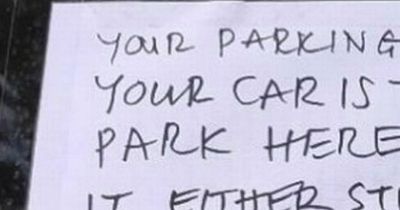 YOUR PARKING
YOUR CAR IS
PARK HERE
IT EITHER